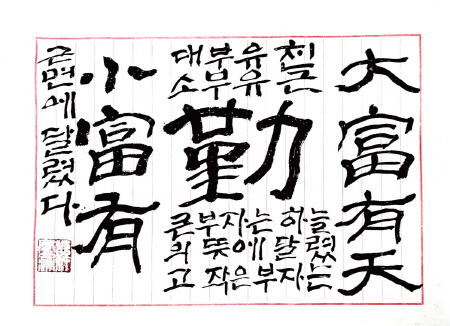 大富有天
小富有
勤
대부유천
소부유근
큰부자는 하늘
의 뜻에 달렸
고 작은부자는
근면에 달렸다